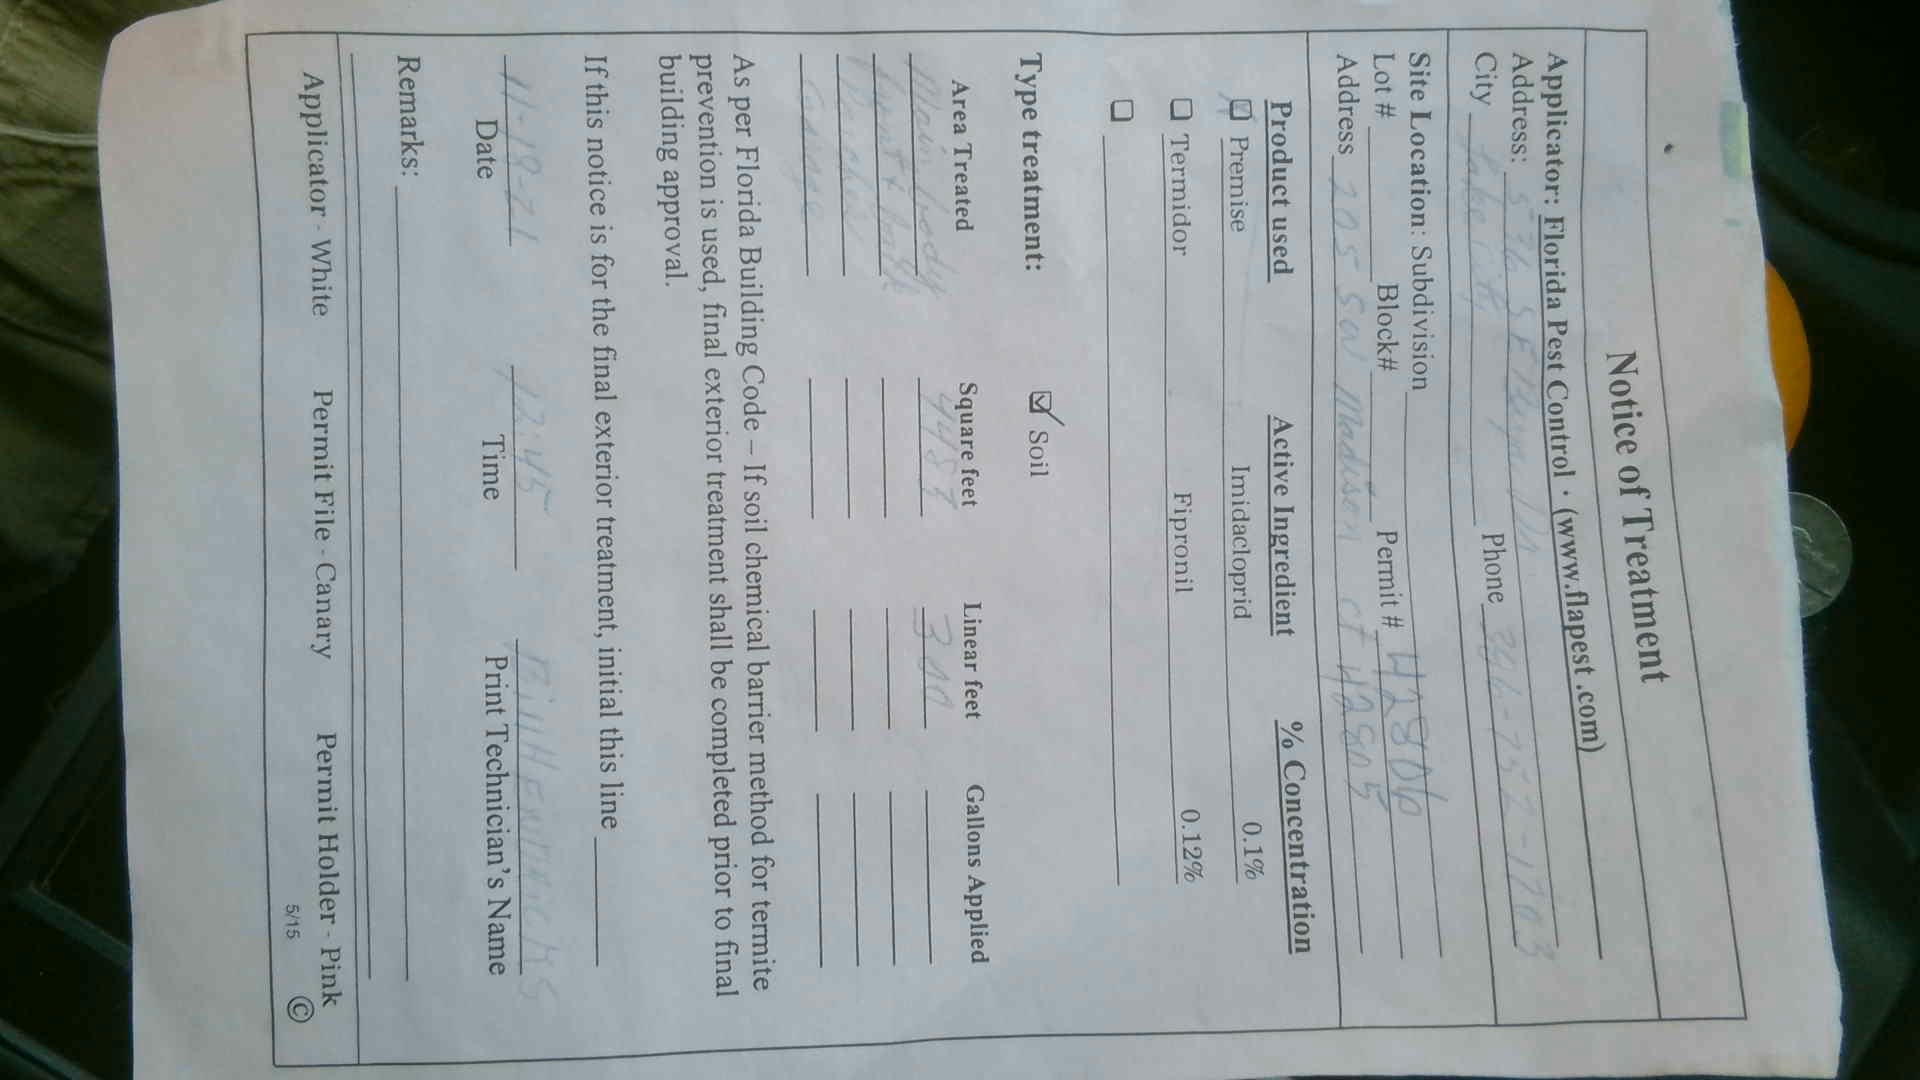 Notice of Treatment
Applicator: Florida Pest Control • (www.flapest.com)
Address: 536 SE
City Lake City Phone 386-752-1703
Site Location: Subdivision
Lot # Block# Permit # 42806
Address 205 SW Madison ct 42805
Product used Active Ingredient % Concentration
☑ Premise Imidacloprid 0.1%
☐ Termidor Fipronil 0.12%
☐
Type treatment: ☑ Soil
Area Treated Square feet Linear feet Gallons Applied
Main body 4483 300
Front & back
Porches
Garage
As per Florida Building Code – If soil chemical barrier method for termite
prevention is used, final exterior treatment shall be completed prior to final
building approval.
If this notice is for the final exterior treatment, initial this line
11-19-21 12:45 Bill
Date Time Print Technician's Name
Remarks:
Applicator - White Permit File - Canary Permit Holder - Pink
5/15 ©